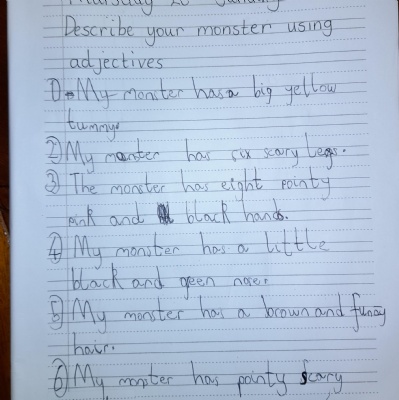 Thursday 20 January
Describe your monster using
adjectives
① My monster has a big yellow
tummy.
② My monster has six scary legs.
③ The monster has eight pointy
pink and black hands.
④ My monster has a little
black and green nose.
⑤ My monster has a brown and funny
hair.
⑥ My monster has pointy scary